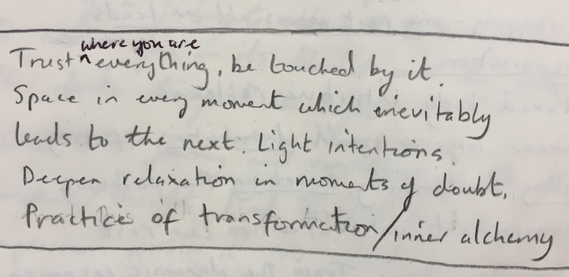 where you are
Trust ^ everything, be touched by it.
Space in every moment which inevitably
leads to the next. Light intentions.
Deepen relaxation in moments of doubt.
Practices of transformation/inner alchemy